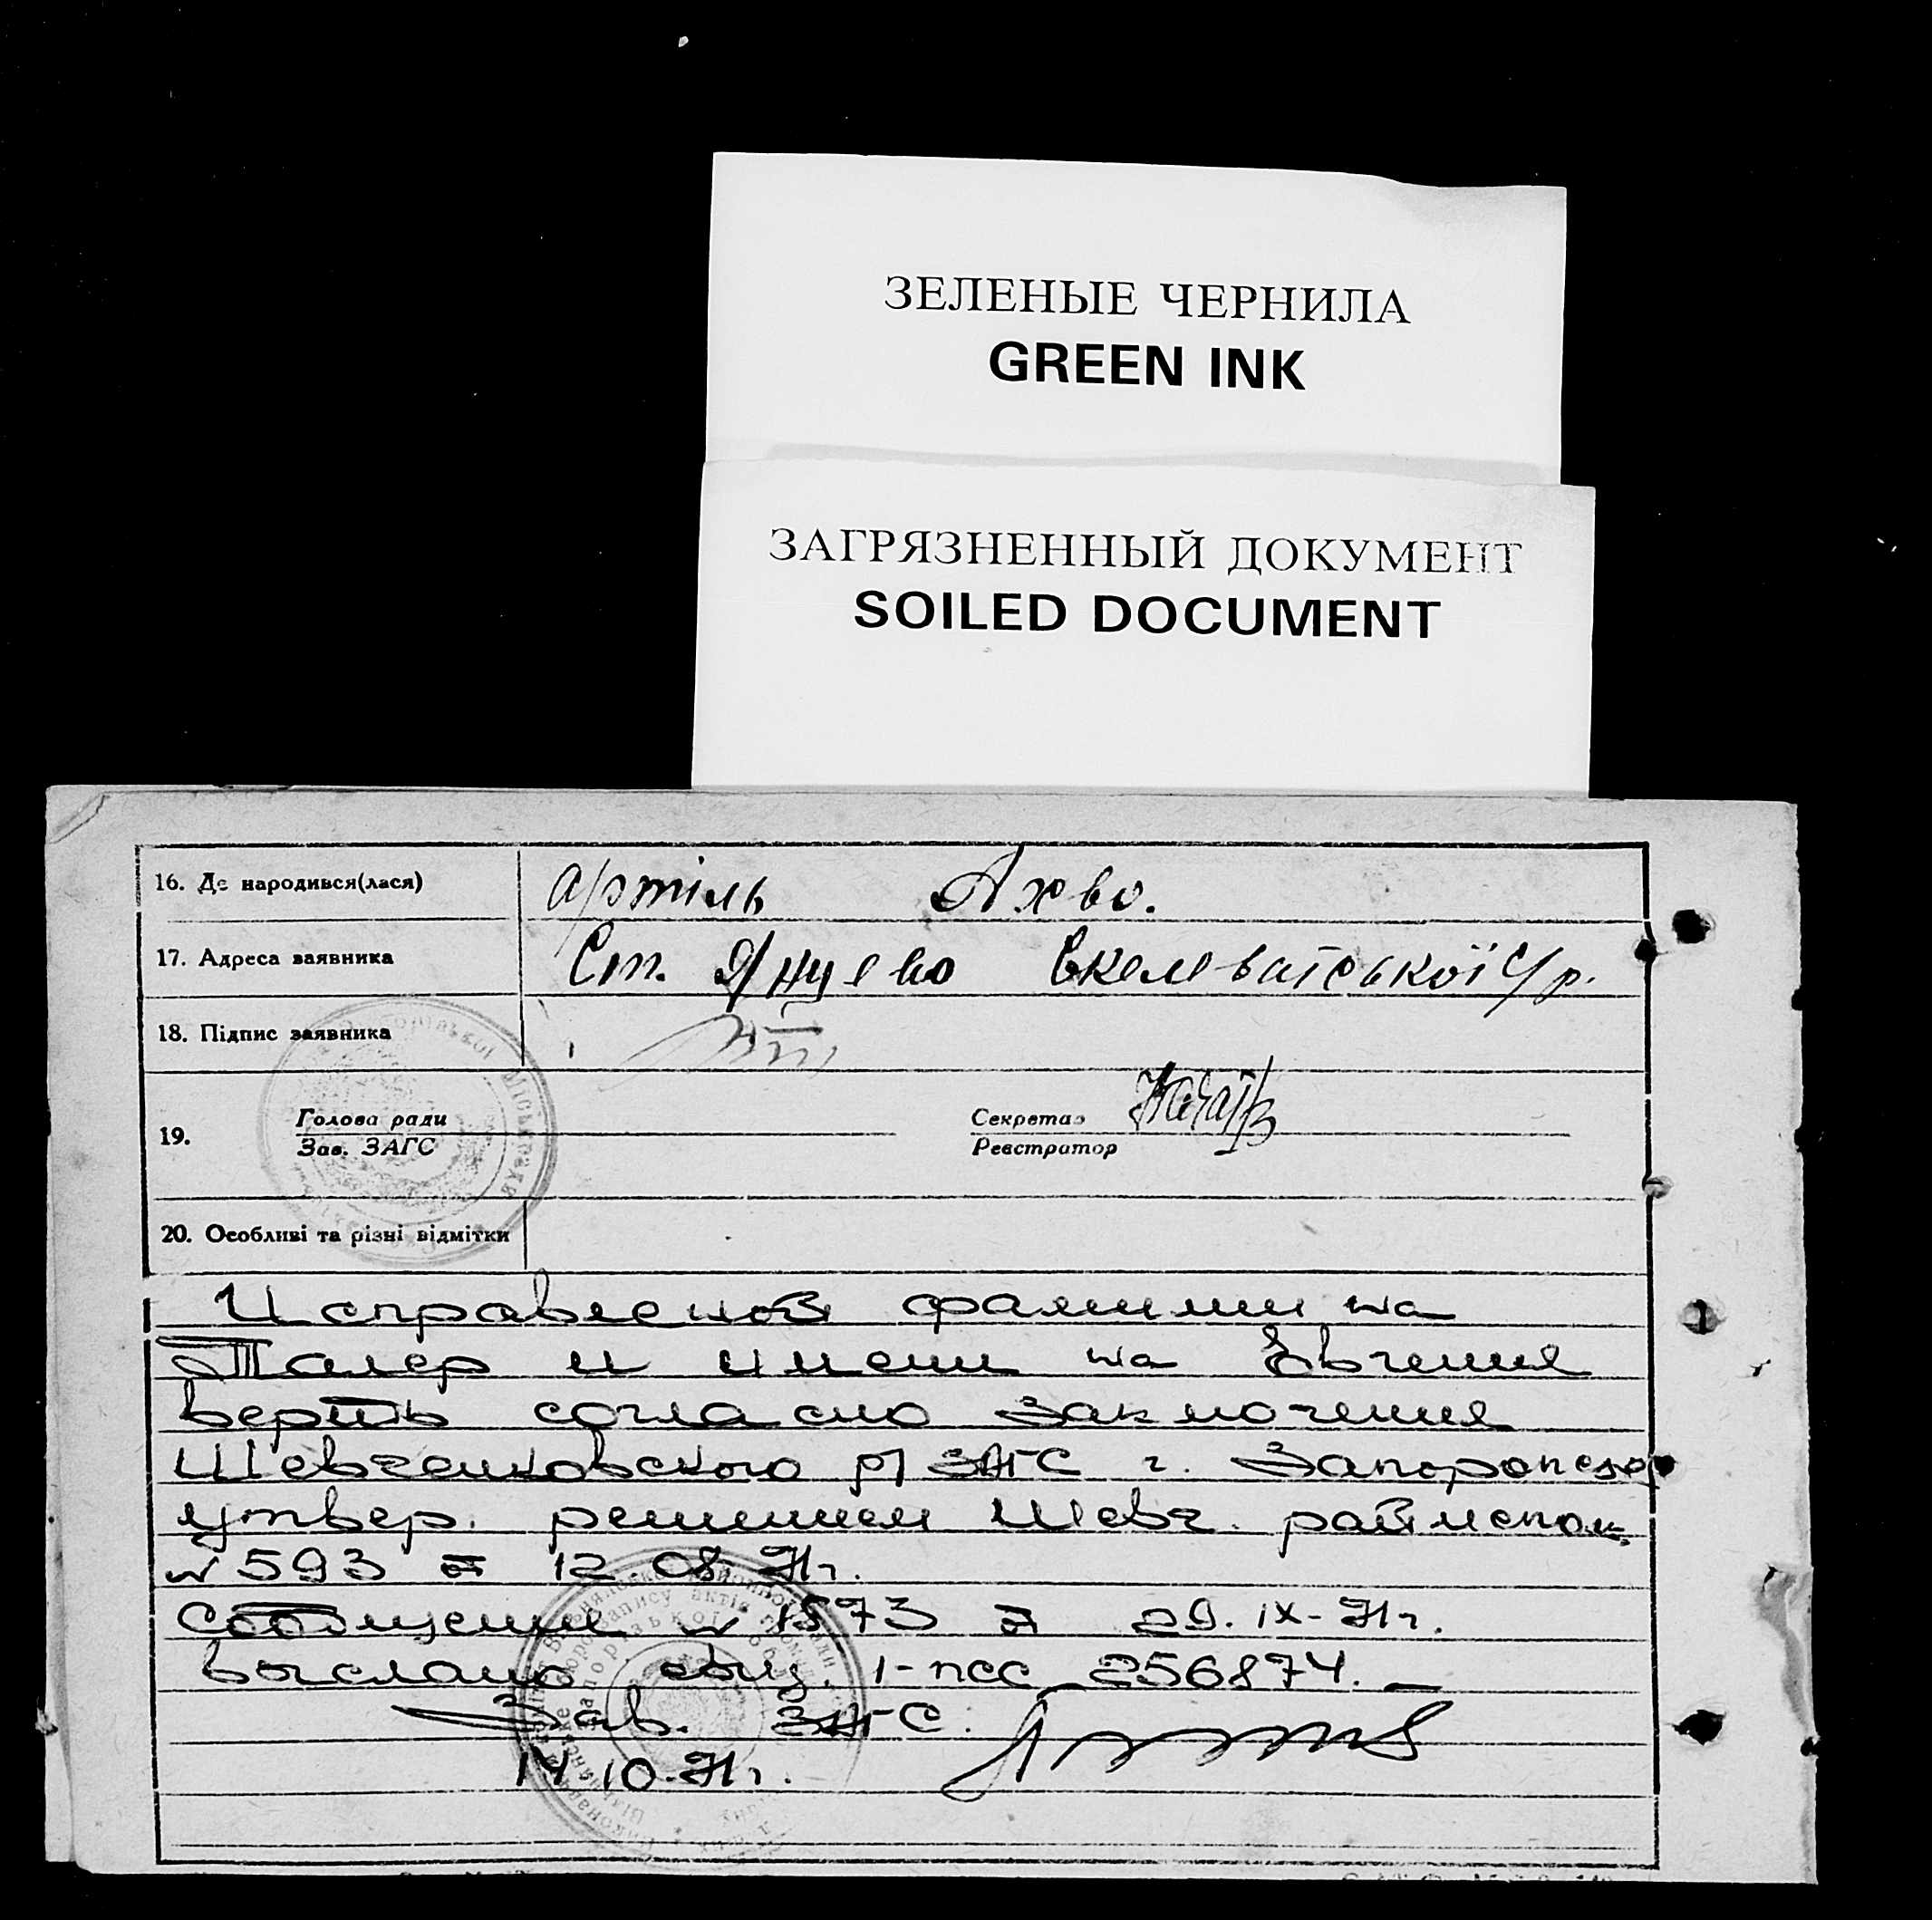 ЗЕЛЕНЫЕ ЧЕРНИЛА
GREEN INK
ЗАГРЯЗНЕННЫЙ ДОКУМЕНТ
SOILED DOCUMENT
16. Де народився(лася) Артіль
17. Адреса заявника Ст. Янцево Скелеватської с/р.
18. Підпис заявника
19. Голова ради Секретар
Зав. ЗАГС Реєстратор
20. Особливі та різні відмітки
Исправленной фамилии на
Талер и имени на Евгения
верить согласно заключения
Шевченковского р/ЗАГС г. Запорожья
утвер. решением Шевч. райисполк.
№ 593 от 12.08.71 г.
Сообщение № 1573 от 29.IX-71 г.
выслано свид. 1-ПСС 256874.
Зав. ЗАГС.
14.10.71 г.